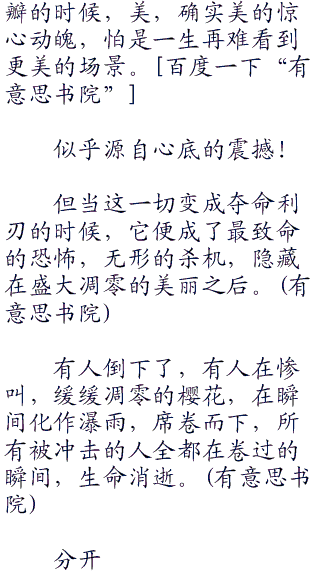 瓣的时候，美，确实美的惊
心动魄，怕是一生再难看到
更美的场景。[百度一下“有
意思书院”]
似乎源自心底的震撼！
但当这一切变成夺命利
刃的时候，它便成了最致命
的恐怖，无形的杀机，隐藏
在盛大凋零的美丽之后。(有
意思书院)
有人倒下了，有人在惨
叫，缓缓凋零的樱花，在瞬
间化作瀑雨，席卷而下，所
有被冲击的人全都在卷过的
瞬间，生命消逝。(有意思书
院)
分开